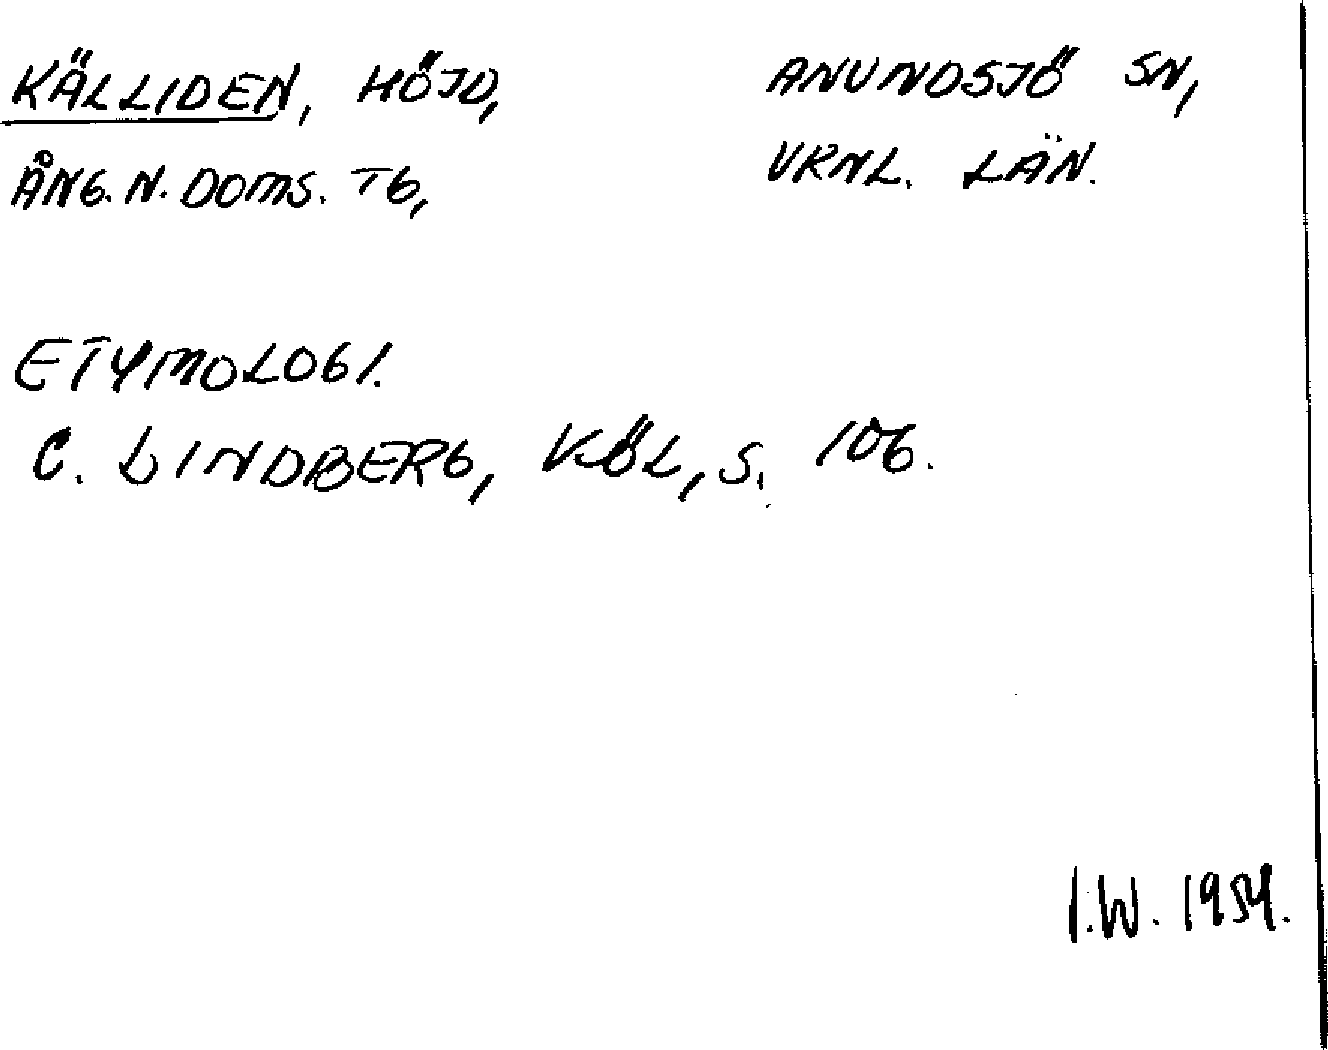 KÄLLIDEN, HÖJD, ANUNDSJÖ SN,
ÅNG. N. DOMS. TG, VRNL. LÄN.
ETYMOLOGI.
C. LINDBERG, KÖL, S. 106.
I.W. 1954.